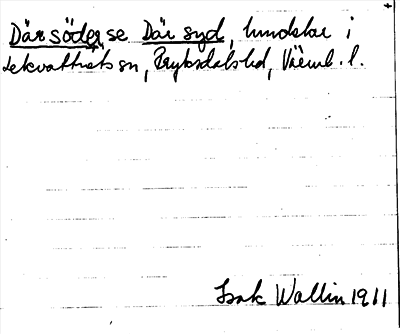 Där söder, se Där syd, hundslar i
Lekvattnets sn, Fryksdals hd, Värml. l.
Isak Wallin 1911